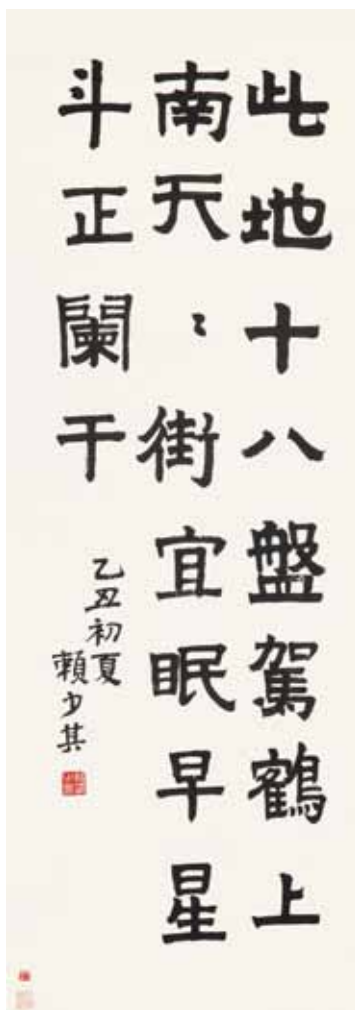 此地十八盤駕鶴上
南天〻街宜眠早星
斗正闌干
乙丑初夏
賴少其